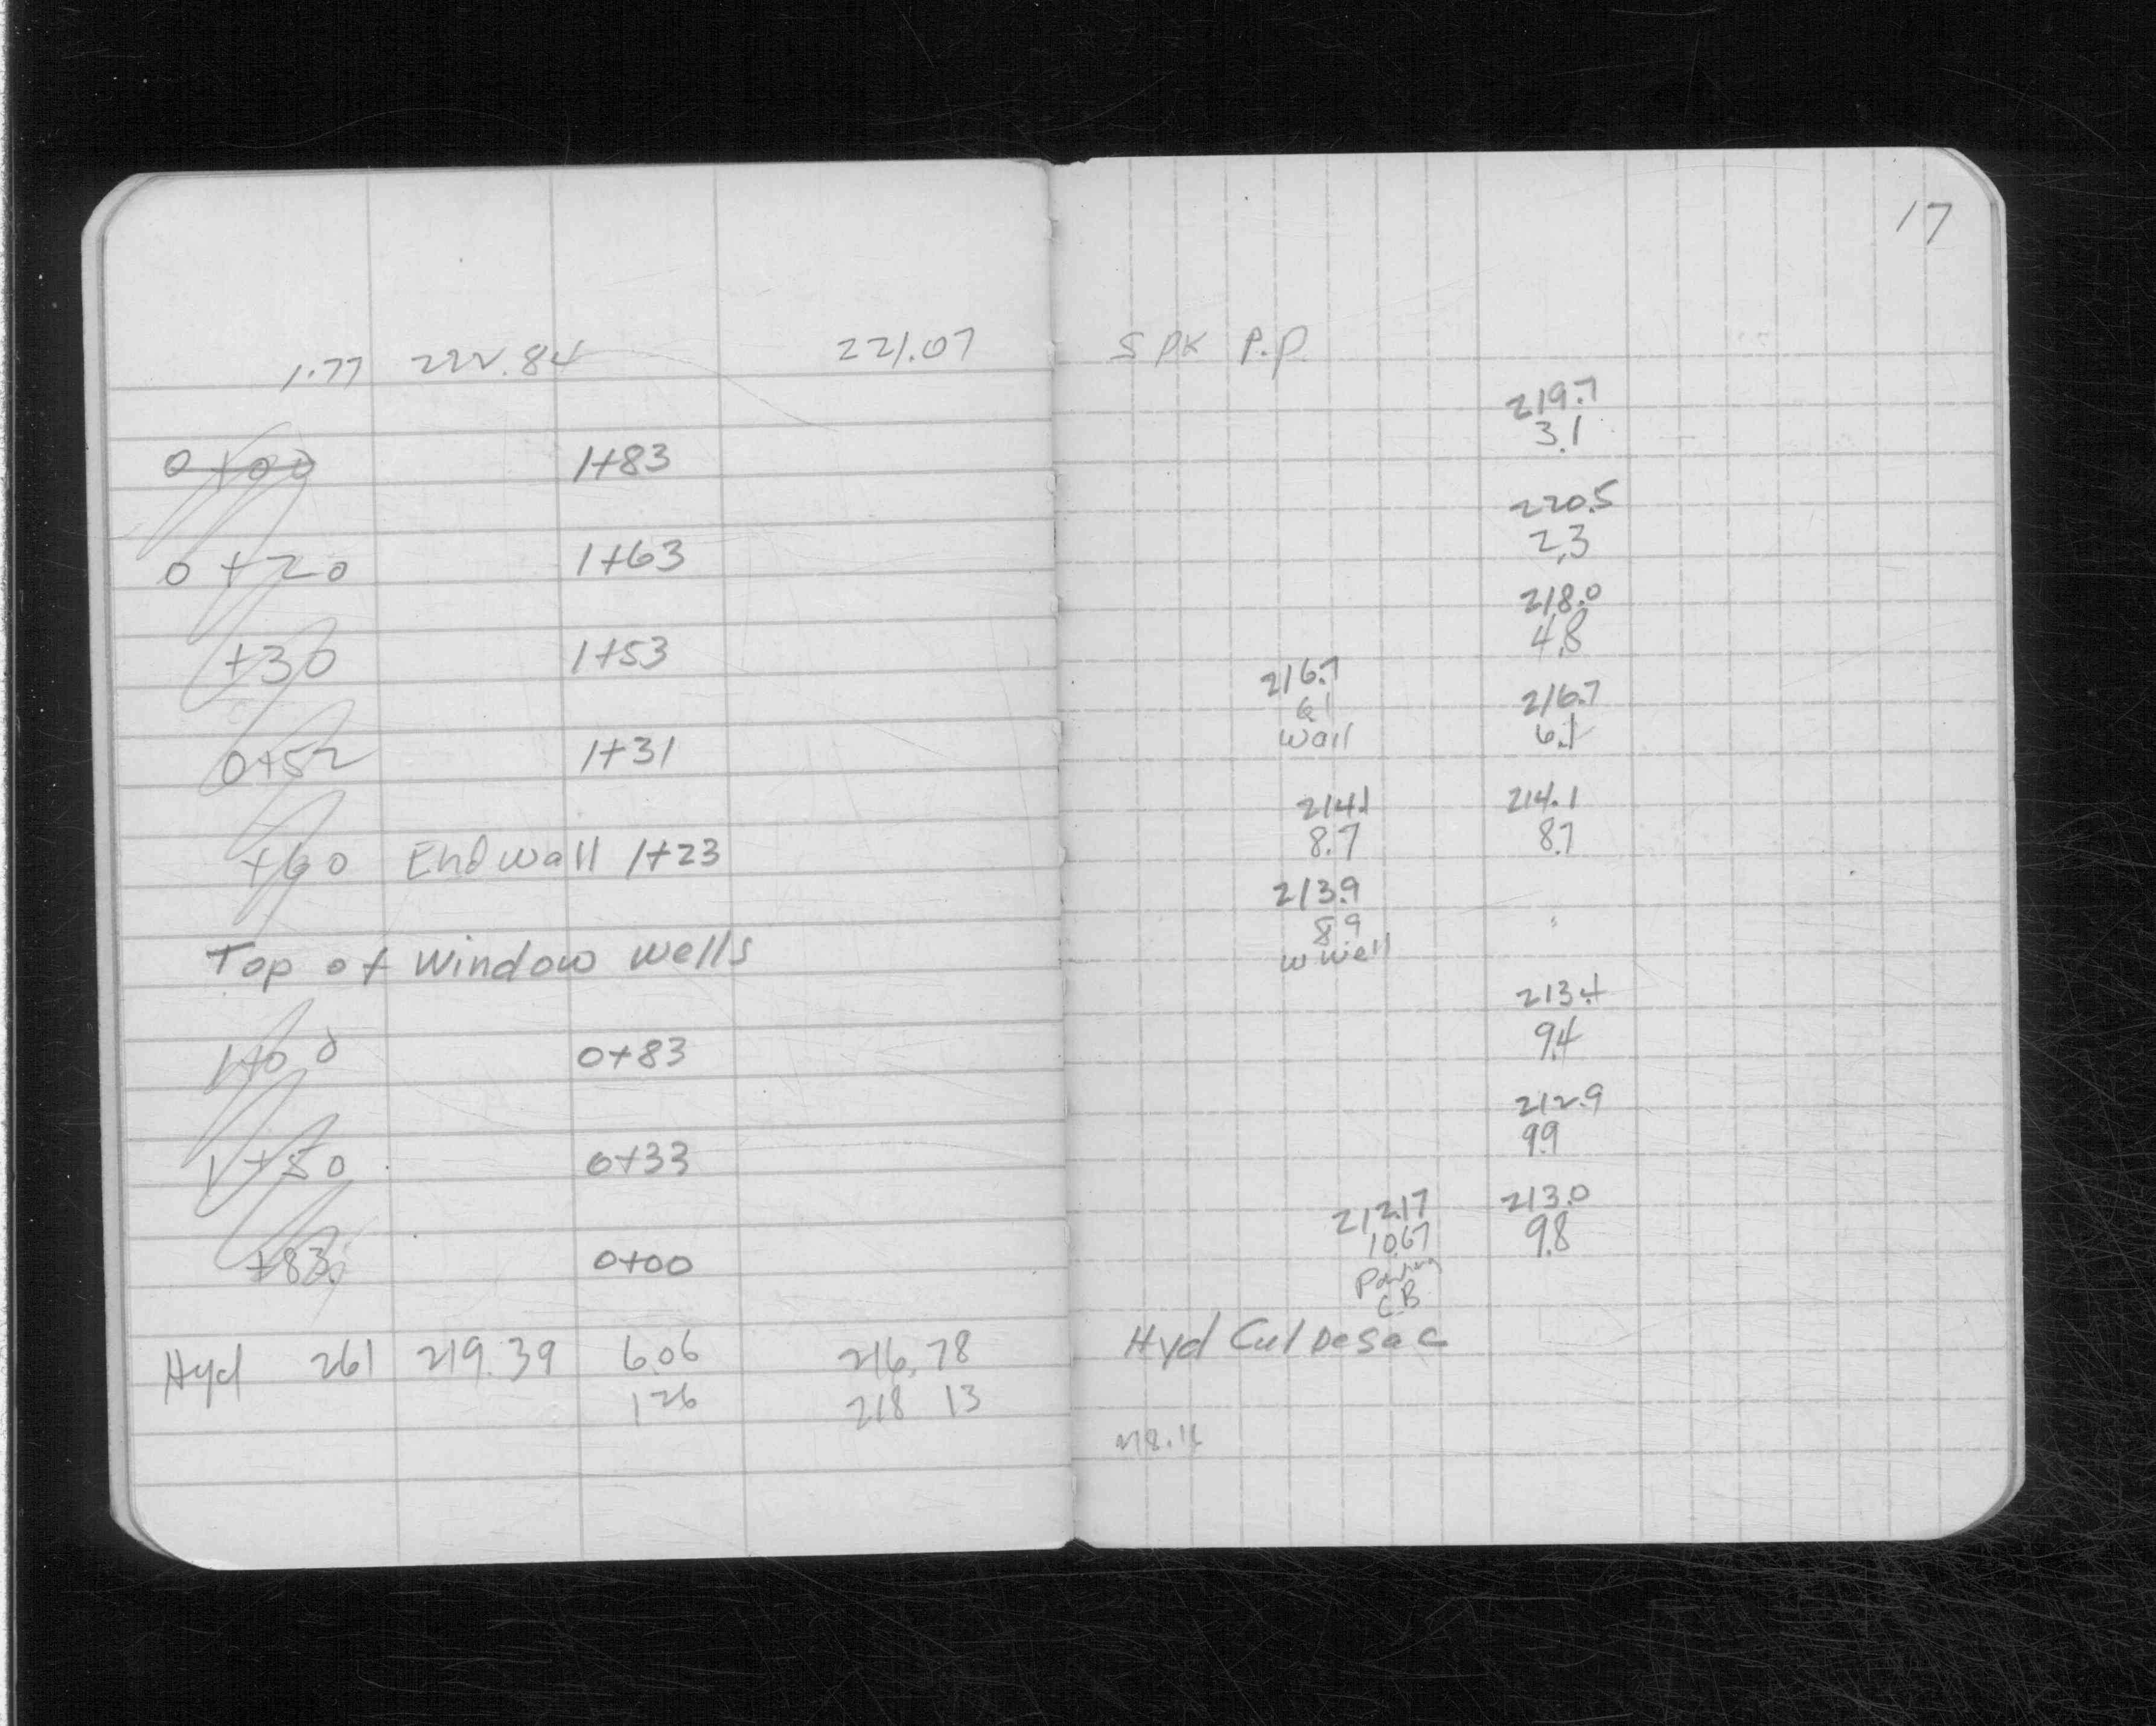 17
1.77 222.84 221.07 SPK P.P.
219.7
3.1
0+00 1+83
220.5
2.3
0+20 1+63
218.0
4.8
+30 1+53
216.7 216.7
6.1 6.1
Wall
0+52 1+31
214.1 214.1
8.7 8.7
+60 End wall 1+23
213.9
8.9
W Well
Top of Window Wells
213.4
9.4
1+00 0+83
212.9
9.9
1+50 0+33
212.17 213.0
10.67 9.8
C.B
+83 0+00
Hyd 261 219.39 6.06 216.78 Hyd Cul De Sac
1 26 218 13